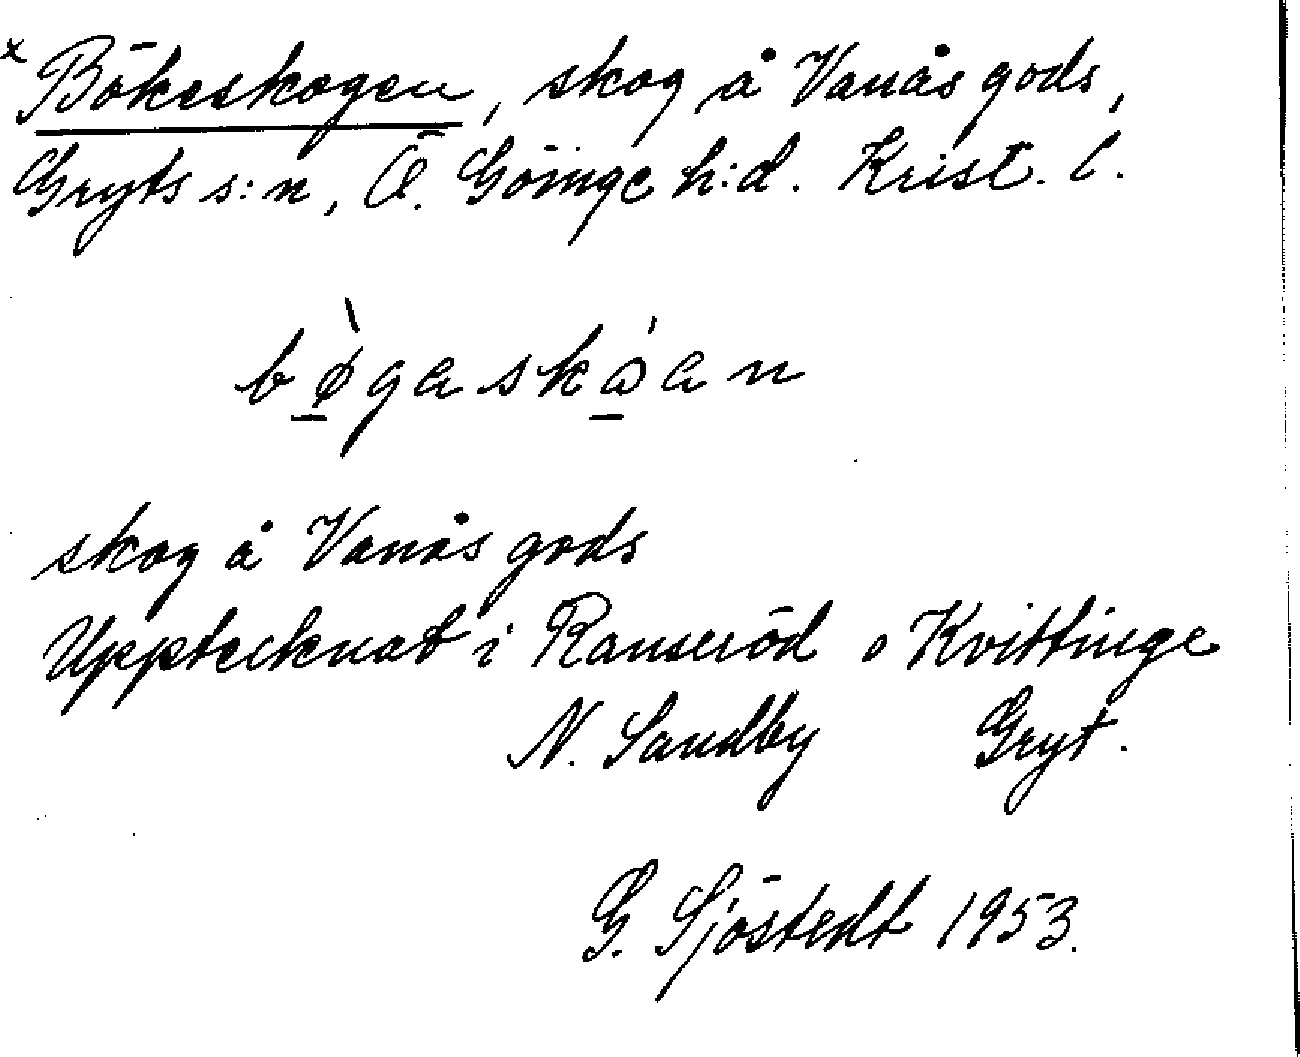 x Bökeskogen, skog å Vanås gods,
Gryts s:n, Ö. Göinge h:d. Krist. l.
bø̲̀gaskώ̲an
skog å Vanås gods
Upptecknat i Ranseröd o Kvittinge
N. Sandby Gryt.
G. Sjöstedt 1953.